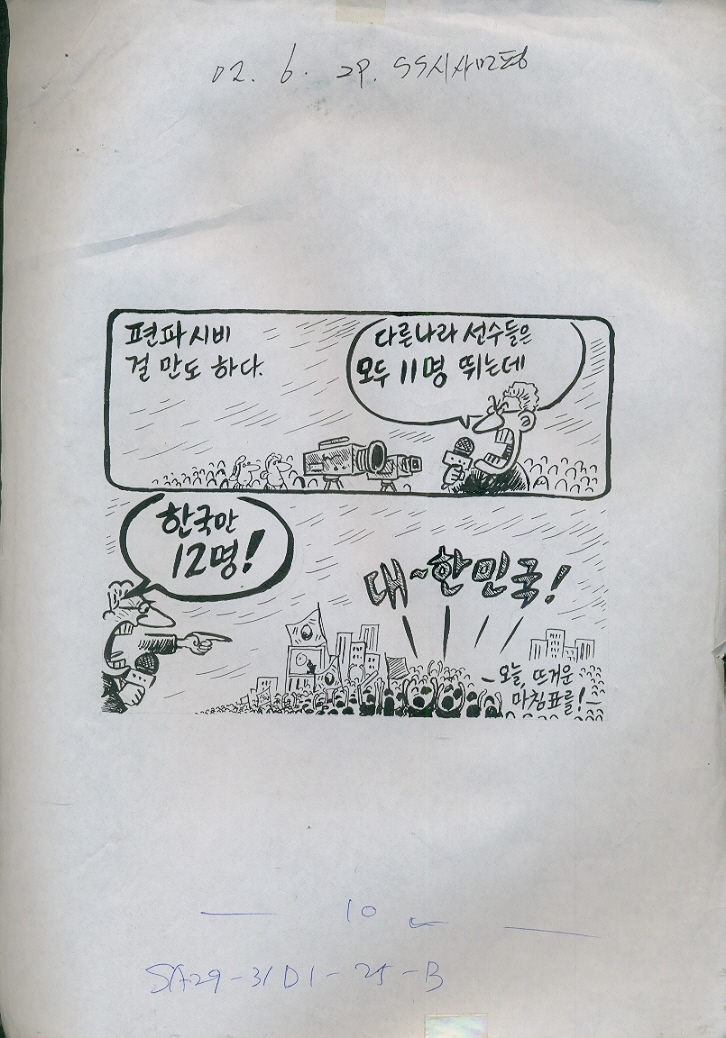 02. 6. 29. SS시사만평
편파시비
걸 만도 하다.
다른나라 선수들은
모두 11명 뛰는데
한국만
12명!
대~한민국!
- 오늘, 뜨거운
마침표를! -
10
SA29-31D1-25-B